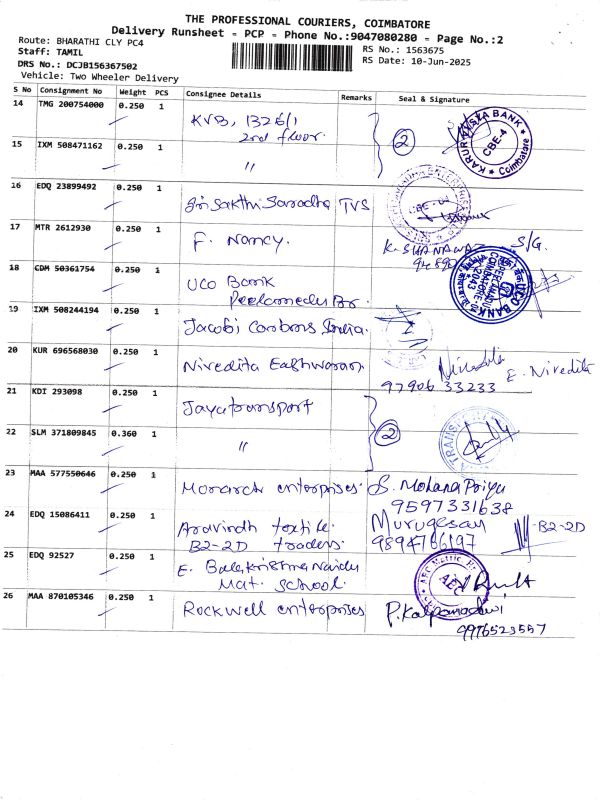 THE PROFESSIONAL COURIERS, COIMBATORE
Delivery Runsheet - PCP - Phone No.:9047080280 - Page No.:2
Route: BHARATHI CLY PC4
RS No.: 1563675
Staff: TAMIL
RS Date: 10-Jun-2025
DRS No.: DCJB156367502
Vehicle: Two Wheeler Delivery
S No Consignment No Weight PCS Consignee Details Remarks Seal & Signature
14 TMG 200754000 0.250 1 KVB, 1326/1
2nd floor. 2
KARUR VYSYA BANK CBE-4 Coimbatore
15 IXM 508471162 0.250 1 "
16 EDQ 23899492 0.250 1 Sri Sakthi Sarodha TVS
17 MTR 2612930 0.250 1 F. Nancy. S/G.
18 CDM 50361754 0.250 1 UCO Bank
Peelamedu Br.
UCO BANK
19 IXM 508244194 0.250 1 Jacobi Carbons India.
20 KUR 696568030 0.250 1 Nivedita Eashwaran E. Nivedita
97906 33233
21 KDI 293098 0.250 1 Jayatransport 2
22 SLM 371809845 0.360 1 "
23 MAA 577550646 0.250 1 Monarch enterprises. S. Mohana Priya
9597331638
24 EDQ 15086411 0.250 1 Aravindh textile. Murugesan B2-2D
B2-2D traders. 9894766197
25 EDQ 92527 0.250 1 E. Balakrishna Naidu
Mat. School.
AEC
26 MAA 870105346 0.250 1 Rockwell enterprises P. Kalpanadevi
9976523557